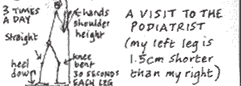 3 TIMES
A DAY
hands
shoulder
height
Straight
heel
down
knee
bent
30 SECONDS
EACH LEG
A VISIT TO THE
PODIATRIST
(my left leg is
1.5cm shorter
than my right)